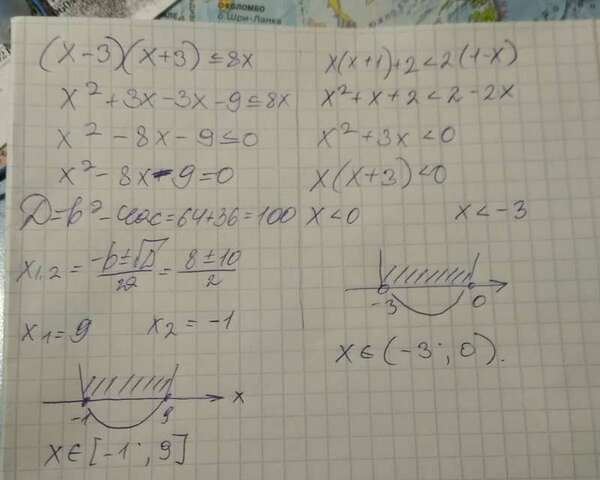 КОЛОМБО
Шри-Ланка
(x-3)(x+3) ≤ 8x
x² + 3x - 3x - 9 ≤ 8x
x² - 8x - 9 ≤ 0
x² - 8x - 9 = 0
D = b² - 4ac = 64 + 36 = 100
x₁,₂ = (-b ± √D)/2a = (8 ± 10)/2
x₁ = 9 x₂ = -1
-1 9 x
x ∈ [-1; 9]
x(x+1)+2 < 2(1-x)
x² + x + 2 < 2 - 2x
x² + 3x < 0
x(x+3) < 0
x < 0 x < -3
-3 0
x ∈ (-3; 0).